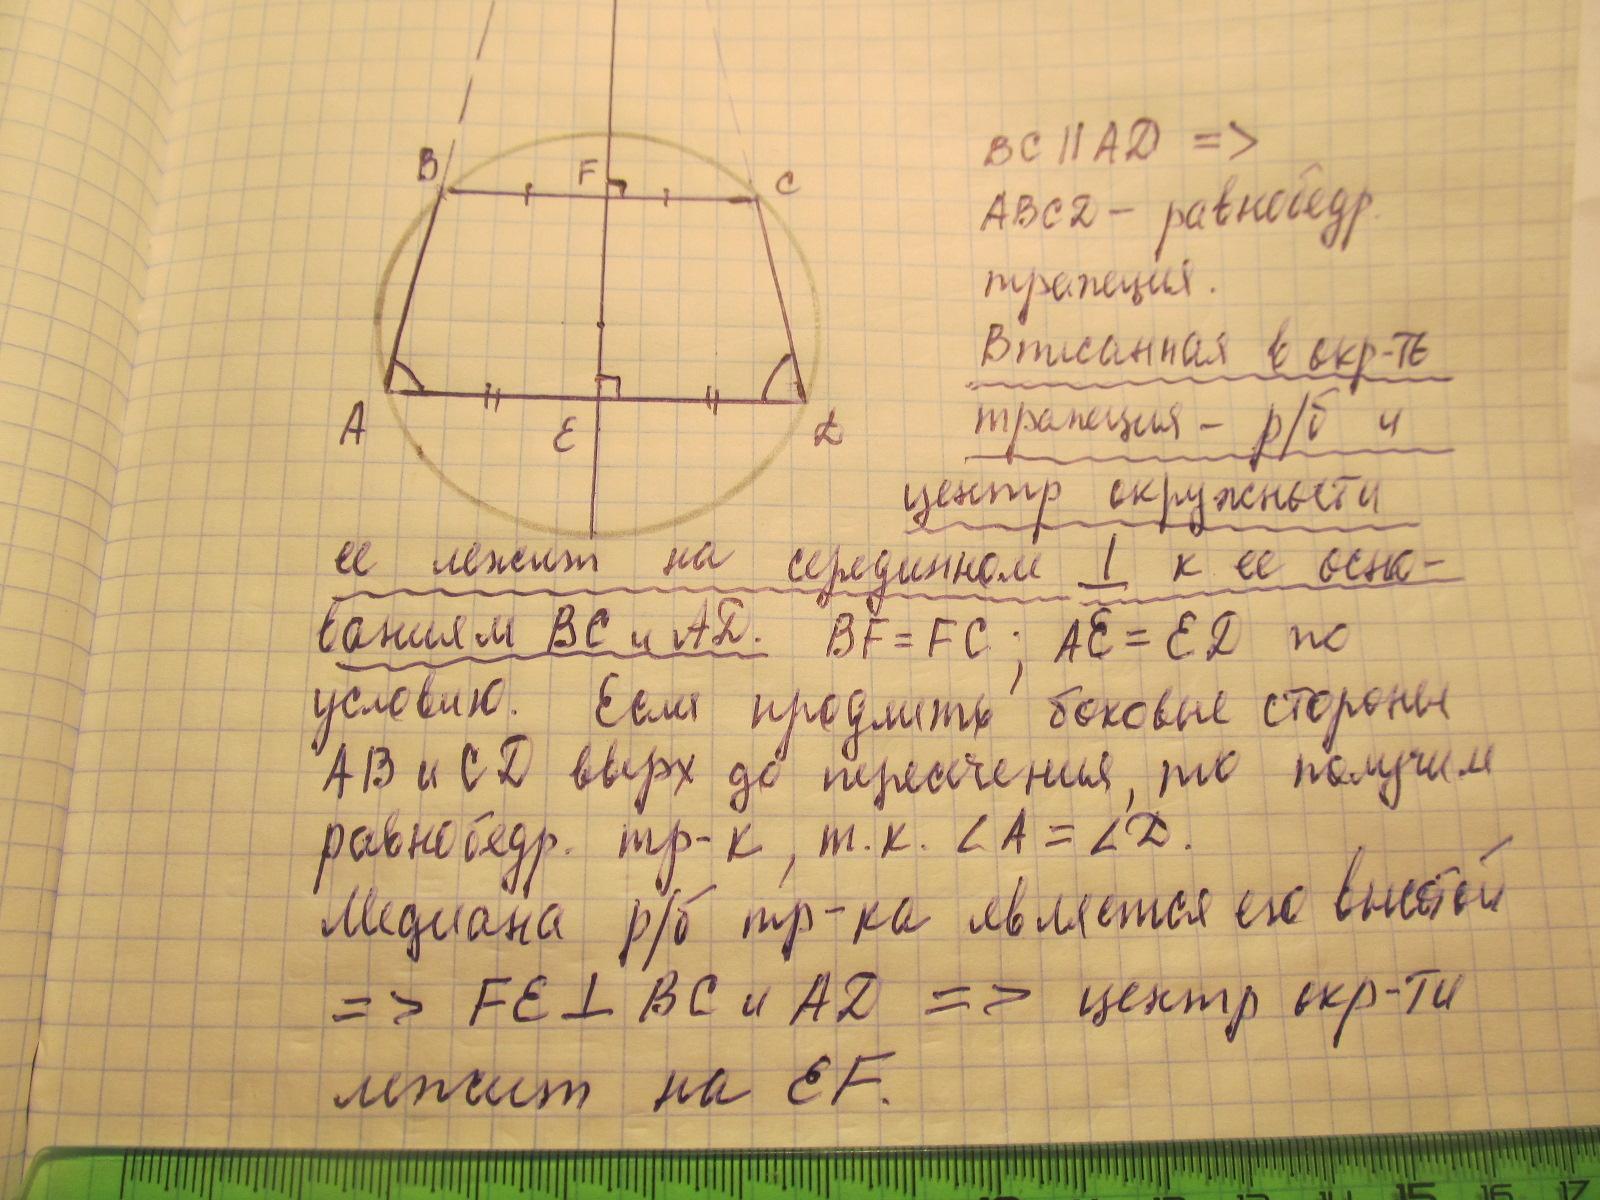 B F C
A E D
BC || AD =>
ABCD - равнобедр.
трапеция.
Вписанная в окр-ть
трапеция - р/б и
центр окружности
ее лежит на серединном ⊥ к ее осно-
ваниям BC и AD. BF = FC; AE = ED по
условию. Если продлить боковые стороны
AB и CD вверх до пересечения, то получим
равнобедр. тр-к, т.к. ∠A = ∠D.
Медиана р/б тр-ка является его высотой
=> FE ⊥ BC и AD => центр окр-ти
лежит на EF.
13 14 15 16 17